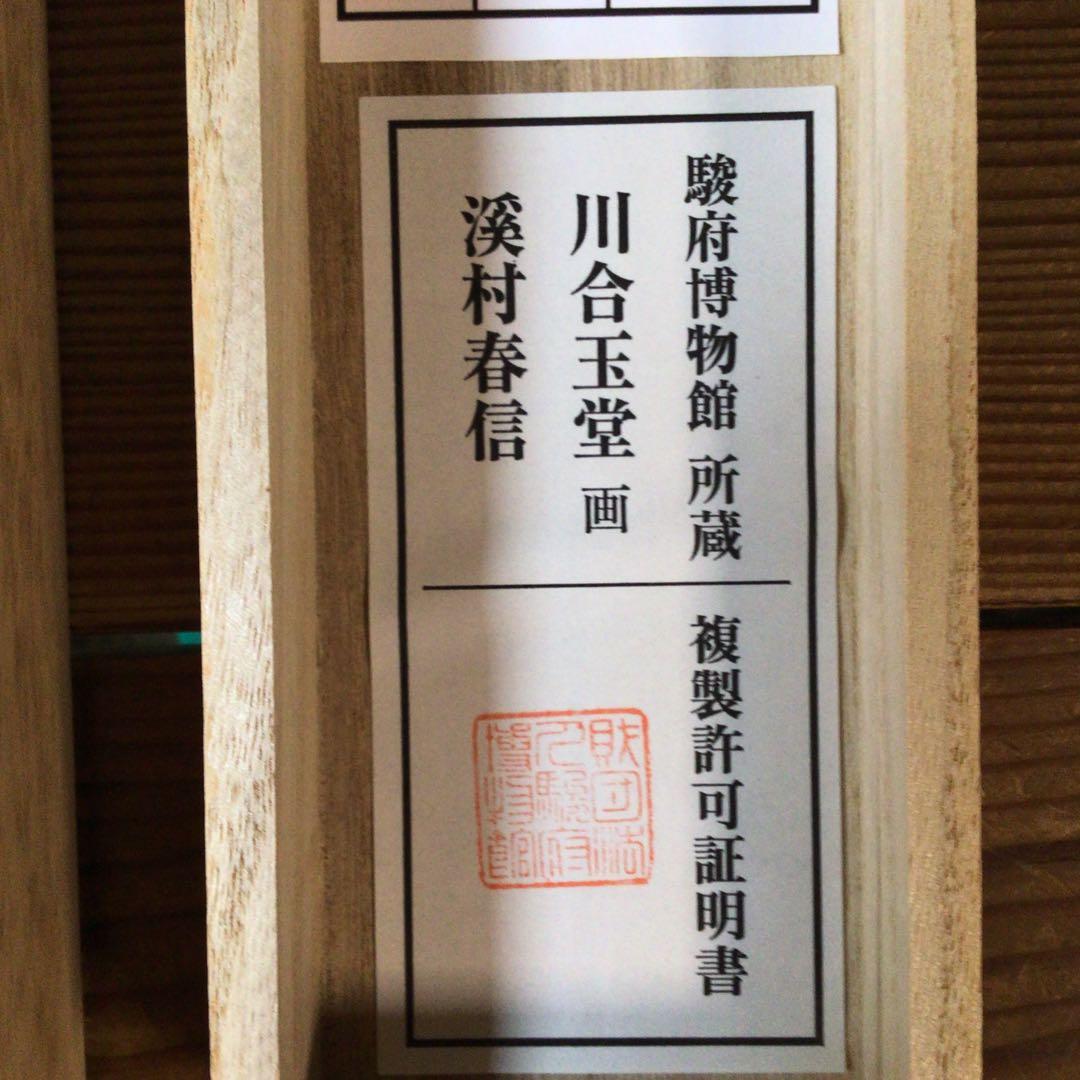 駿府博物館 所蔵 複製許可証明書
川合玉堂 画
溪村春信
財団法
人駿府
博物館